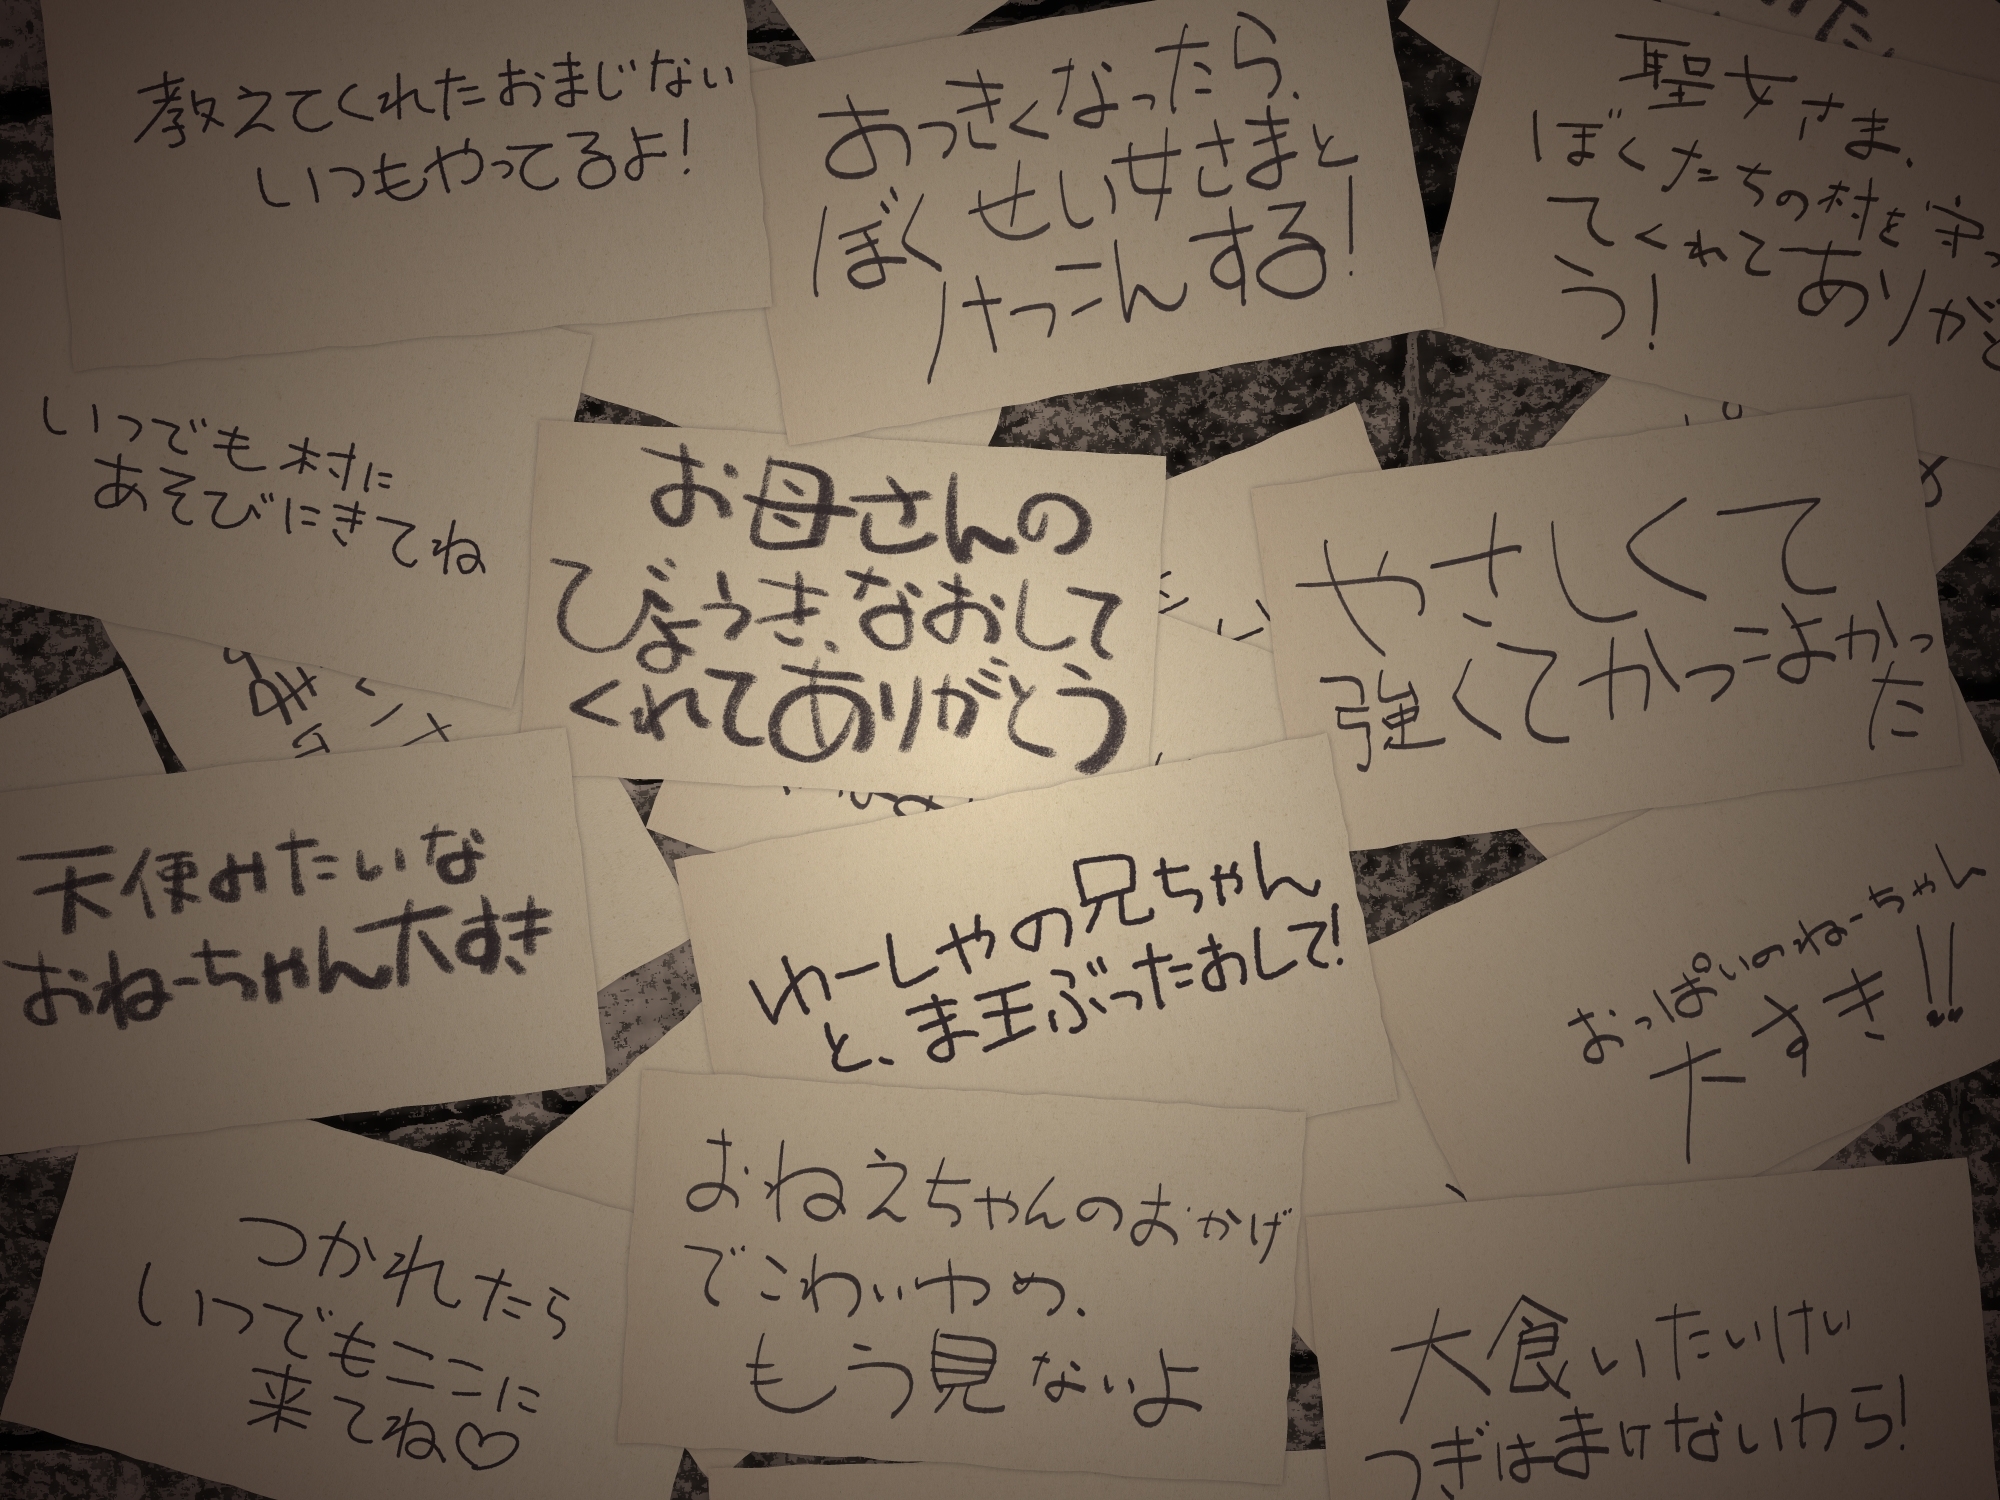 教えてくれたおまじない
いつもやってるよ！
おっきくなったら、
せい女さまと
ぼく
けっこんする！
聖女さま、
ぼくたちの村を守っ
てくれてありがと
う！
いつでも村に
あそびにきてね
お母さんの
びょうき、なおして
くれてありがとう
やさしくて
強くてかっこよかっ
た
天使みたいな
おねーちゃん大すき
ゆーしゃの兄ちゃん
と、ま王ぶったおして！
おっぱいのねーちゃん
すき！！
つかれたら
いつでもここに
来てね♡
おねえちゃんのおかげ
でこわいゆめ、
もう見ないよ
大食いたいけい
つぎはまけないから！